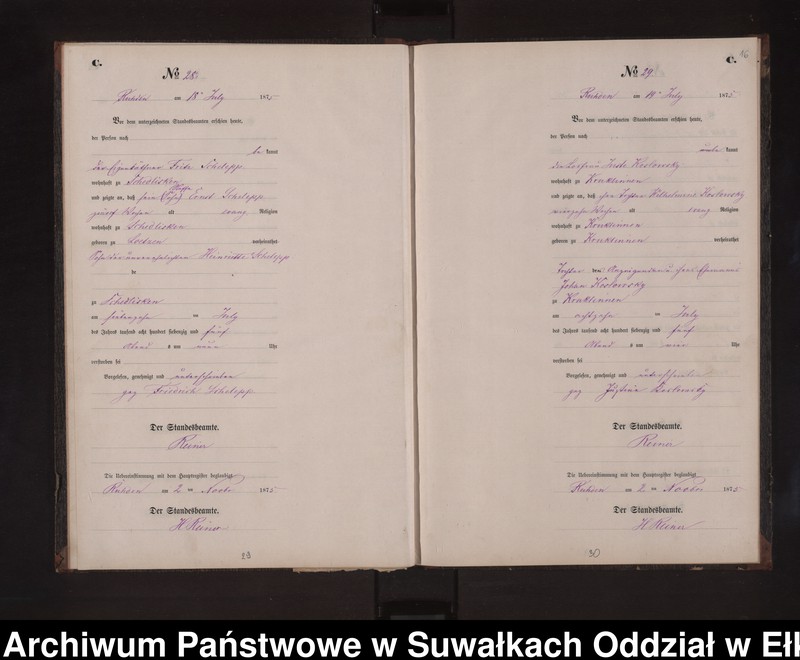 C.
No 28
am 18 July 1875
Vor dem unterzeichneten Standesbeamten erschien heute,
der Person nach
be kannt
der Eigenkäthner Fritz Schelepp
wohnhaft zu Schedlisken
und zeigte an, daß sein Ernst Schelepp
alt evang Religion
wohnhaft zu Schedlisken
geboren zu Loetzen verheirathet
Henriette Schelepp
zu Schedlisken
am siebenzehn ten July
des Jahres tausend acht hundert siebenzig und fünf
Abend s um neun Uhr
verstorben sei
Vorgelesen, genehmigt und unterschrieben
gez Friedrich Schelepp
Der Standesbeamte.
Reiner
Die Uebereinstimmung mit dem Hauptregister beglaubigt
am 2 ten Novbr 1875
Der Standesbeamte.
H Reiner
29
C.
16
No 29
am 19 July 1875
Vor dem unterzeichneten Standesbeamten erschien heute,
der Person nach
kannt
die Losfrau Koslowsky
wohnhaft zu Konklennen
und zeigte an, daß ihre Tochter Wilhelmine Koslowsky
Wochen alt evang Religion
wohnhaft zu Konklennen
geboren zu Konklennen verheirathet
Tochter der Anzeigenden u ihres Ehemanns
Johan Koslowsky
zu Konklennen
am achtzehn ten July
des Jahres tausend acht hundert siebenzig und fünf
Abend s um neun Uhr
verstorben sei
Vorgelesen, genehmigt und unterschrieben
gez Justine Koslowsky
Der Standesbeamte.
Reiner
Die Uebereinstimmung mit dem Hauptregister beglaubigt
am 2 ten Novbr 1875
Der Standesbeamte.
H Reiner
30
Archiwum Państwowe w Suwałkach Oddział w Ełk